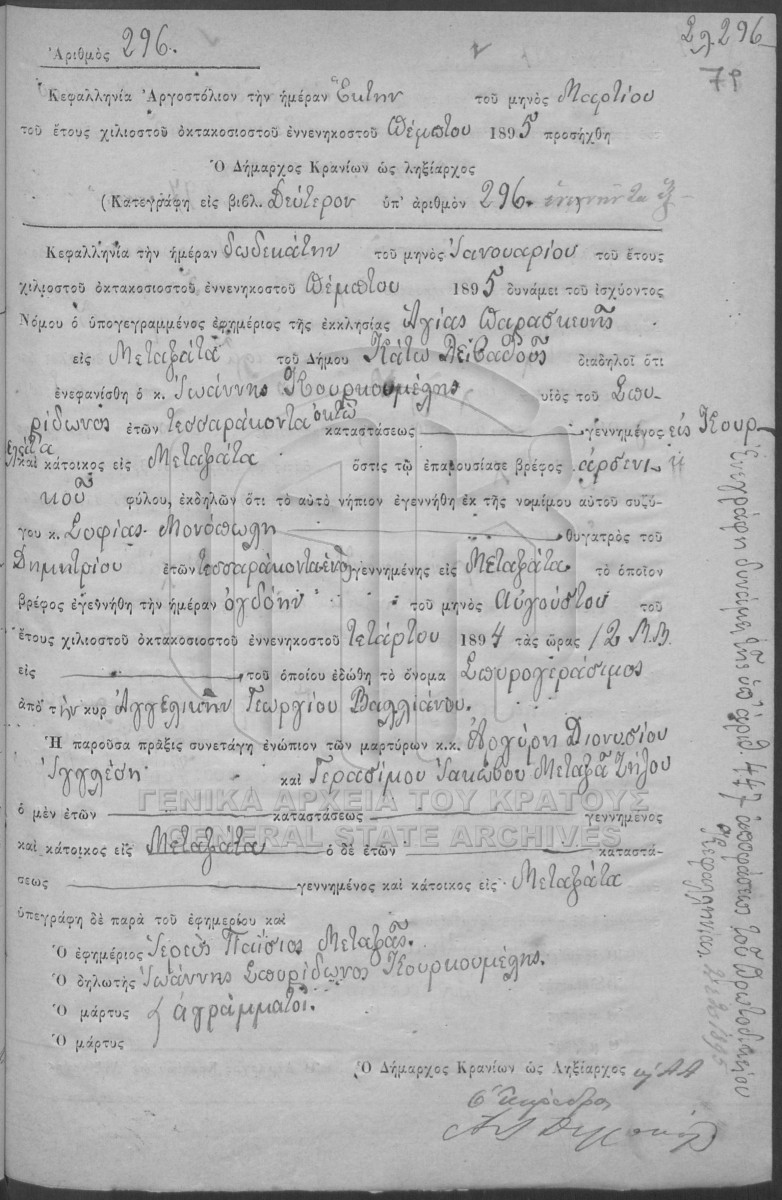 Ἀριθμὸς 296.
2λ. 296
79
Κεφαλληνία Ἀργοστόλιον τὴν ἡμέραν Ἕκτην τοῦ μηνὸς Μαρτίου
τοῦ ἔτους χιλιοστοῦ ὀκτακοσιοστοῦ ἐννενηκοστοῦ Πέμπτου 1895 προσήχθη
Ὁ Δήμαρχος Κρανίων ὡς ληξίαρχος
(Κατεγράφη εἰς βιβλ. Δεύτερον ὑπ' ἀριθμὸν 296.
Κεφαλληνία τὴν ἡμέραν δωδεκάτην τοῦ μηνὸς Ἰανουαρίου τοῦ ἔτους
χιλιοστοῦ ὀκτακοσιοστοῦ ἐννενηκοστοῦ Πέμπτου 1895 δυνάμει τοῦ ἰσχύοντος
Νόμου ὁ ὑπογεγραμμένος ἐφημέριος τῆς ἐκκλησίας Ἁγίας Παρασκευῆς
εἰς Μεταξάτα τοῦ Δήμου Κάτω Λειβαθοῦς διαδηλοῖ ὅτι
ἐνεφανίσθη ὁ κ. Ἰωάννης Κουρκουμέλης υἱὸς τοῦ Σπυ-
ρίδωνος ἐτῶν τεσσαράκοντα ὀκτὼ καταστάσεως γεννημένος εἰς Κουρ-
ελάτα
καὶ κάτοικος εἰς Μεταξάτα ὅστις τῷ ἐπαρουσίασε βρέφος ἀρσενι-
κοῦ φύλου, ἐκδηλῶν ὅτι τὸ αὐτὸ νήπιον ἐγεννήθη ἐκ τῆς νομίμου αὐτοῦ συζύ-
γου κ. Σοφίας Μονοπώλη θυγατρὸς τοῦ
Δημητρίου ἐτῶν τεσσαράκοντα ἑνὸς γεννημένης εἰς Μεταξάτα τὸ ὁποῖον
βρέφος ἐγεννήθη τὴν ἡμέραν ὀγδόην τοῦ μηνὸς Αὐγούστου τοῦ
ἔτους χιλιοστοῦ ὀκτακοσιοστοῦ ἐννενηκοστοῦ τετάρτου 1894 τὰς ὥρας 12 Μ.Μ.
εἰς τοῦ ὁποίου ἐδώθη τὸ ὄνομα Σπυρογεράσιμος
ἀπὸ τὴν κυρ Ἀγγελικὴν Γεωργίου Βαλλιάνου.
Ἡ παροῦσα πρᾶξις συνετάγη ἐνώπιον τῶν μαρτύρων κ.κ. Ἀργύρη Διονυσίου
Ἰγγλέση καὶ Γερασίμου Ἰακώβου Μεταξᾶ Τζήλου
ΓΕΝΙΚΑ ΑΡΧΕΙΑ ΤΟΥ ΚΡΑΤΟΥΣ
ὁ μὲν ἐτῶν καταστάσεως γεννημένος
GENERAL STATE ARCHIVES
καὶ κάτοικος εἰς Μεταξάτα ὁ δὲ ἐτῶν καταστά-
σεως γεννημένος καὶ κάτοικος εἰς Μεταξάτα
ὑπεγράφη δὲ παρὰ τοῦ ἐφημερίου καὶ
Ὁ ἐφημέριος Ἱερεὺς Παΐσιος Μεταξᾶς.
Ὁ δηλωτὴς Ἰωάννης Σπυρίδωνος Κουρκουμέλης.
Ὁ μάρτυς ἀγράμματοι.
Ὁ μάρτυς
Ὁ Δήμαρχος Κρανίων ὡς Ληξίαρχος
Ὁ Πάρεδρος
Ἐνεγράφη δυνάμει τῆς ὑπ' ἀριθ. 447 ἀποφάσεως τοῦ Πρωτοδικείου
Κεφαλληνίας.